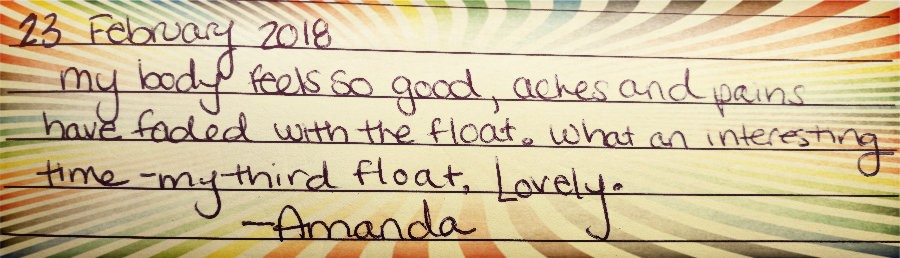 23 February 2018
my body feels so good, aches and pains
have faded with the float. What an interesting
time - my third float. Lovely.
- Amanda